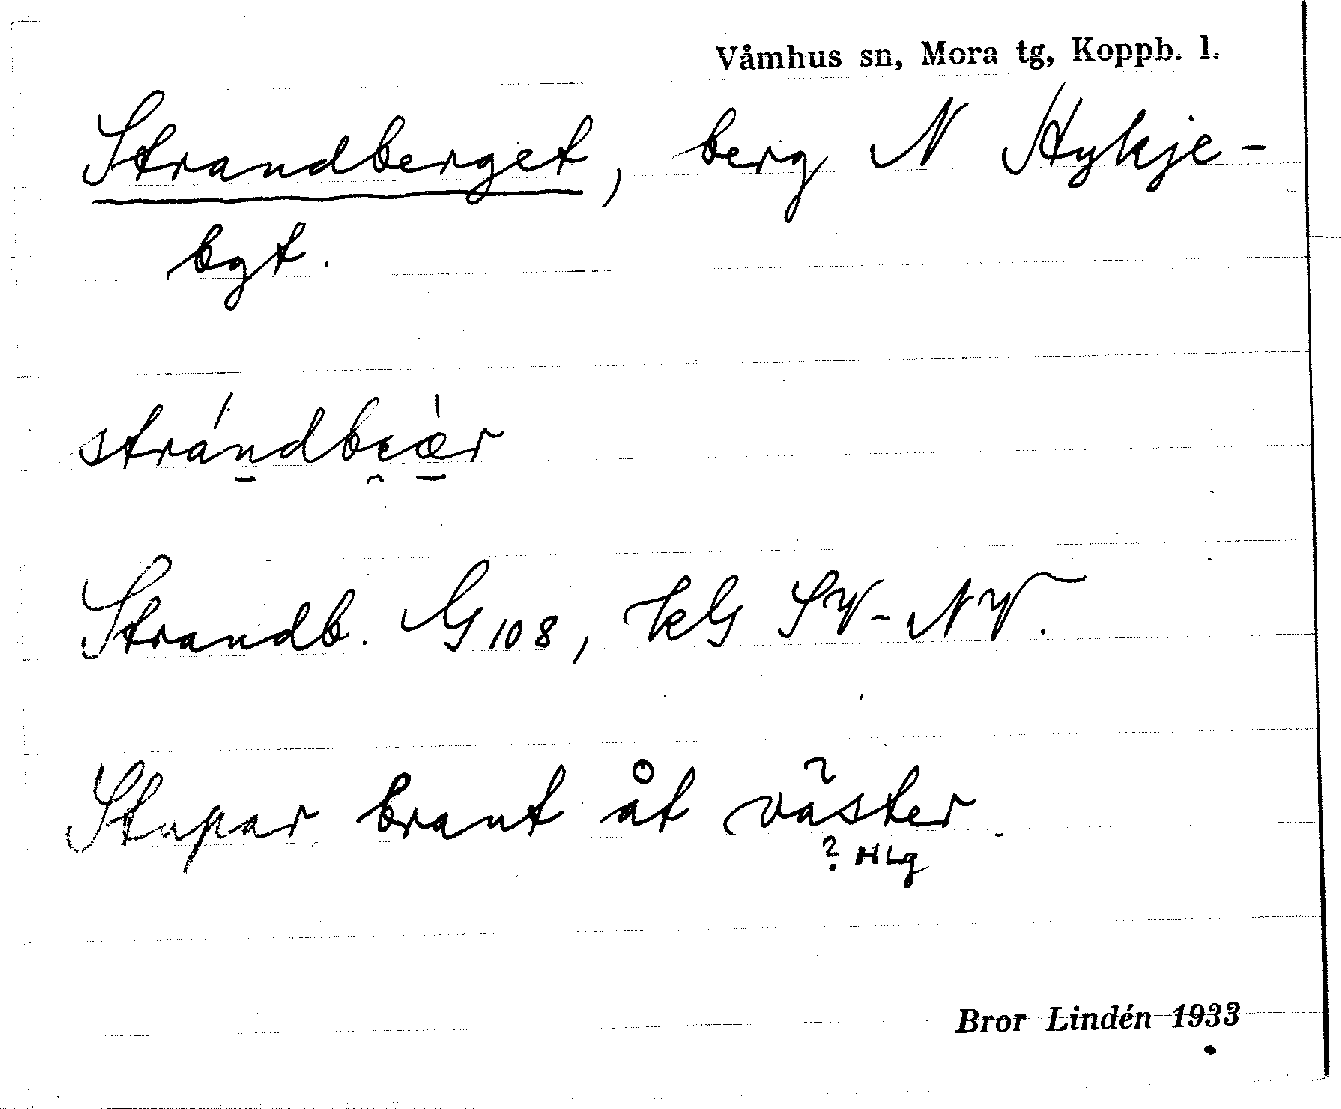 Våmhus sn, Mora tg, Koppb. l.
Strandberget, berg N Hykje-
bgt.
strándbe̯æ̀r
Strandb. G 108, kG SV-NV.
Stupar brant åt väster.
? HLg
Bror Lindén 1933